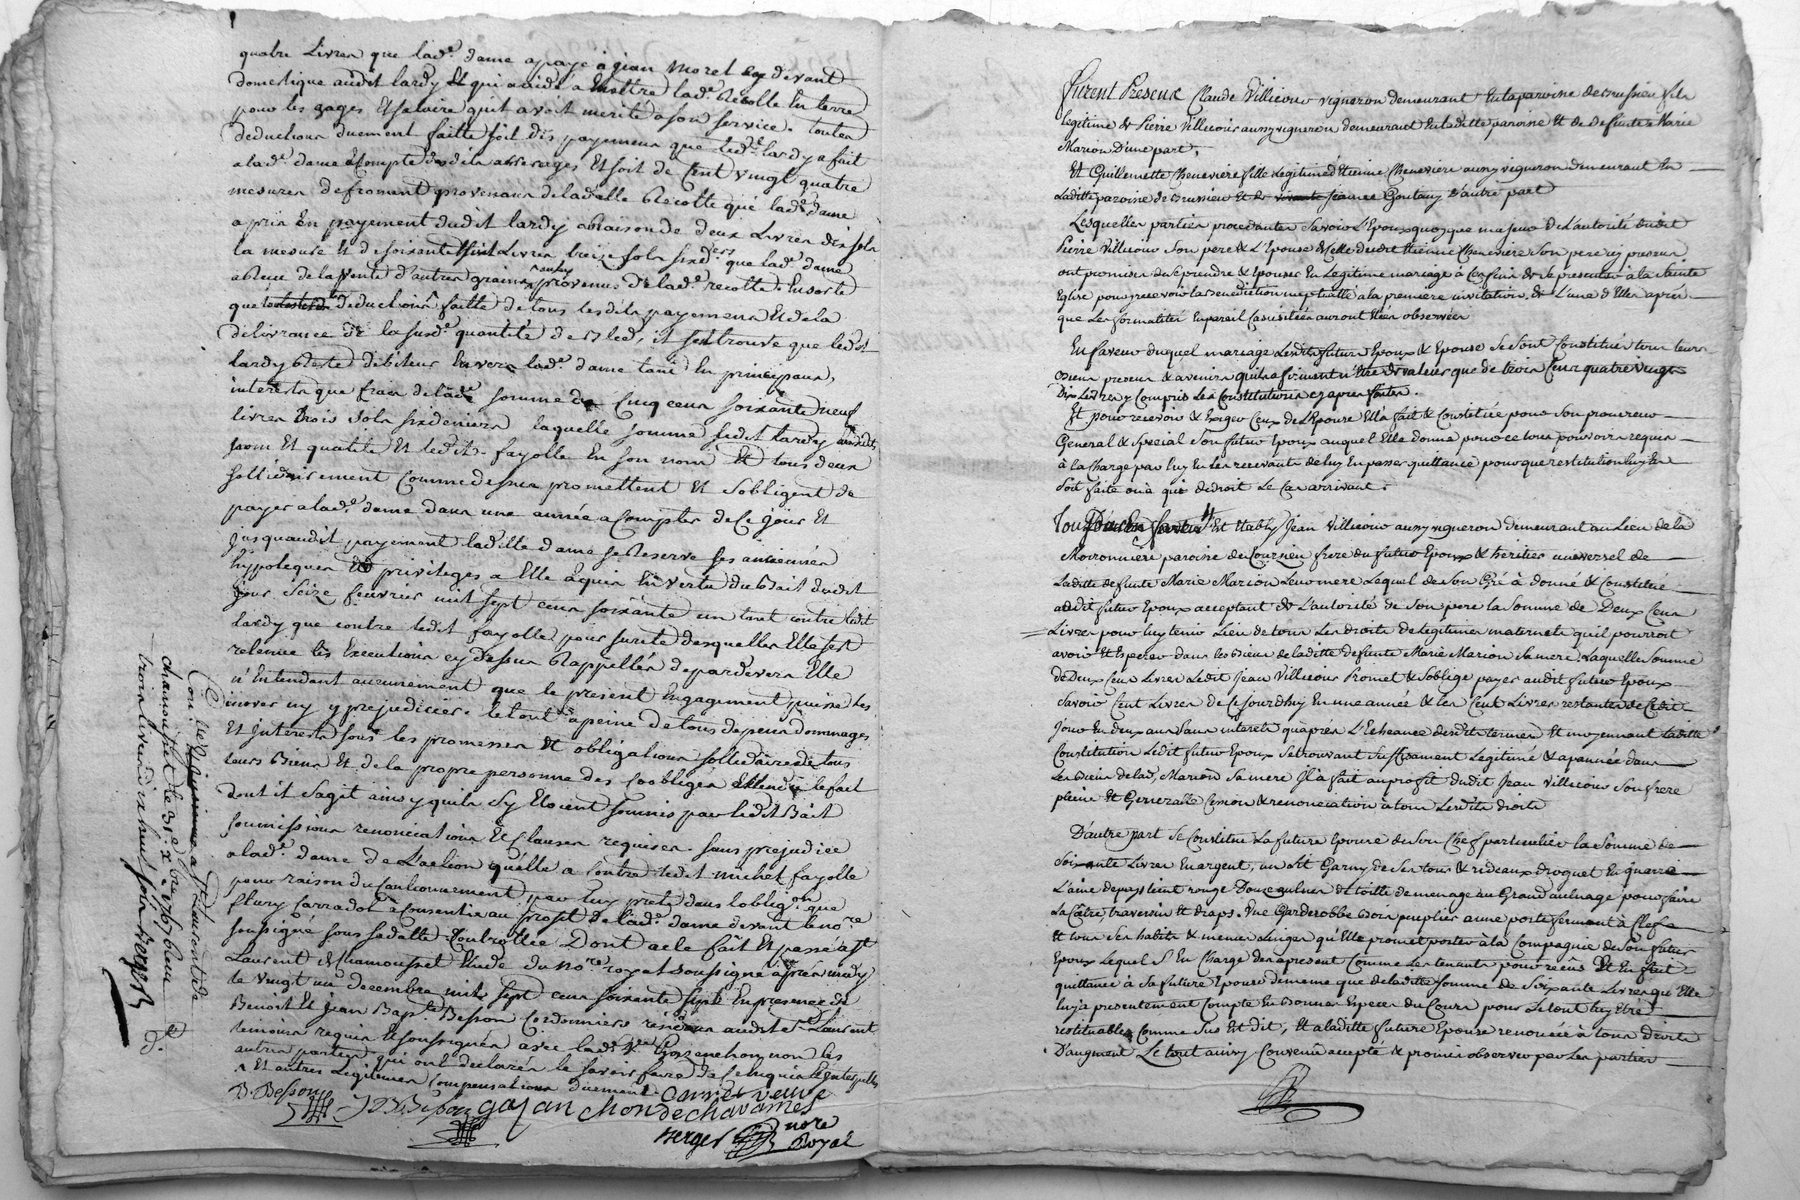 quatre Livres que lad.e dame a payé a jean Morel cy devant
domestique audit lardy Et qui a aidé a mettre lad.e Recolle En terre
pour les gages Et salaire qu'il avoit merité a son service. toutes
deductions duement faitte soit des payemens que ledit lardy a fait
a lad.e dame a Compte desdits arrerages, Et soit de Cent vingt quatre
mesures de froment provenans de laditte Recolte que lad.e dame
a pris En payement dudit lardy a raison de deux Livres dix sols
la mesure Et de soixante huit Livres treize sols six d.ers que lad.e dame
a Reçue de la vente d'autres grains provenus de lad.e recolte. Ensorte
que deductions faitte de tous lesdits payemens Et de la
delivrance de la susd.e quantité de Bled, il se trouve que ledit
Lardy Reste débiteur Envers lad.e dame tant En principaux,
intérêts que frais de la somme de Cinq cens soixante neuf
livres trois sols six deniers laquelle somme ledit lardy audit
nom Et qualité Et ledit fayolle En son nom Et tous deux
sollidairement Comme dessus promettent Et s'obligent de
payer a lad.e dame dans une année a Compter de Ce jour Et
jusquaudit payement laditte dame se Reserve ses anciennes
hypoteques Et privileges a Elle acquis En vertu du Bail dudit
jour seize fevrier mil sept cens soixante un tant contre ledit
Lardy que contre ledit fayolle pour sureté desquelles Elle s'est
retenue les Executions cy dessus Rappellées depardevers Elle
n'Entendant aucunement que le present Engagement puisse les
inover ny y prejudicier. le tout a peine de tous depens dommages
Et intérêts sous les promesses Et obligations sollidaires de tous
leurs Biens Et de la propre personne des Coobligés attendu le fait
dont il s'agit ainsy qu'ils s'y Etoient soumis par ledit Bail
soumissions renonciations Et clauses requises. sans prejudice
a lad.e dame de L'action qu'elle a contre ledit michel fayolle
pour raison du Cautionnement par luy preté dans l'oblig.on que
fleury Carradot a Consentie au profit de lad.e dame devant le no.re
soussigné sous sa datte Controllée Dont acte fait Et passé a S.t
Laurent de Chamousset Etude du No.re royal soussigné après midy
le vingt un decembre mil sept cens soixante sept En presence de
Benoit Et jean Bap.te Besson Cordonniers résidans audit S.t Laurent
temoins requis Et soussignés avec lad.e non les
autres parties qui ont declarés ne le savoir faire de Ce enquis
Et autres Legitimes Compensations duement
B. Besson J B Besson gayan chon veuve
de chavannes
Berger no.re
Royal
Con.lé a S.t Laurent de
chamousset le 31.e x.bre 1767 Reçu
trois livres dix huit sols Berger
Furent Presens Claude VilliCour vigneron demeurant En la paroisse de Brussieu fils
legitime de Pierre Villicour aussy vigneron demeurant En laditte paroisse Et de Defunte Marie
Marion D'une part,
Et Guillemette Chenevière fille Legitime d'Etienne Chenevière aussy vigneron demeurant En
Laditte paroisse de Brussieu Et de vivante Jeanne Goutany D'autre part
Lesquelles parties procedantes savoir L'Epoux quoyque majeur de L'autorité dudit
Pierre Villicour Son pere & L'Epouse de Celle dudit Etienne Chenevière Son pere icy present
ont promises de Se prendre & Epouser En Legitime mariage à Ces fins de Se presenter à la Sainte
Eglise pour y recevoir la Benediction nuptialle à la première invitation de L'une d'Elles après
que Les formalités En pareil Cas usitées auront Eté observées
En faveur duquel mariage Lesdits futurs Epoux & Epouse Se Sont Constitués tous leurs
Biens presens & avenirs quils affirment n'Etre de valeur que de trois Cens quatre vingt
Dix Livres y Compris Les Constitutions cy apres faites.
Et pour recevoir & Exiger Ceux de L'Epouse Elle a fait & Constitué pour Son procureur
General & Special Son futur Epoux auquel Elle donne pour ce tous pouvoirs requis
à la Charge par luy En Les recevants de luy En passer quittance pour que restitution luy En
Soit faite ou à qui de droit Le Cas arrivant.
Et Etably Jean Villicour aussy vigneron demeurant au Lieu de la
Moironniere paroisse de Courzieu frere du futur Epoux & heritier universel de
Laditte defunte Marie Marion Leur mere Lequel de Son Gré à donné & Constitué
audit futur Epoux acceptant de L'autorité de Son pere la Somme de Deux Cens
Livres pour luy tenir Lieu de tous Les droits de Legitimes maternels qu'il pourroit
avoir Et Esperer dans les Biens de laditte defunte Marie Marion Sa mere, Laquelle Somme
de Deux Cens Livres Ledit Jean Villicour Promet & S'oblige payer audit futur Epoux
Savoir Cent Livres de Ce jourdhuy En une année & les Cent Livres restantes de Cedit
Jour En deux ans Sans interets qu'après L'Echeance desdits termes Et moyennant Laditte
Constitution Ledit futur Epoux Se trouvant Suffisament Legitimé & apanné dans
Les Biens de lad. Marion Sa mere Jl a fait au profit dudit Jean Villicour Son frere
pleine Et Generalle Cession & renonciation à tous Lesdits droits
D'autre part Se Constitue La future Epouse de Son Chef particulier la Somme de
Soixante Livres En argent, un Lit Garny de Ses tours & rideaux droguet En quarré
L'aine de pays teint rouge Douze aulnes de toille de menage au Grand aulnage pour faire
La Coetre, traversin Et draps. Une Garderobbe Bois puplier a une porte fermant à Clefs
Et tous Ses habits & menus Linges qu'Elle promet porter à la Compagnie de Son futur
Epoux Lequel S'En Charge des apresent Comme Les tenants pour reçus Et En fait
quittance à Sa future Epouse de meme que de laditte Somme de Soixante Livres qu'Elle
luy a presentement Compté En Bonnes Especes du Cours pour Le tout luy Etre
restituable Comme Sus Est dit, Et a laditte future Epouse renoncée à tous droits
D'augment Le tout ainsy Convenu accepté & promis observer par Les parties